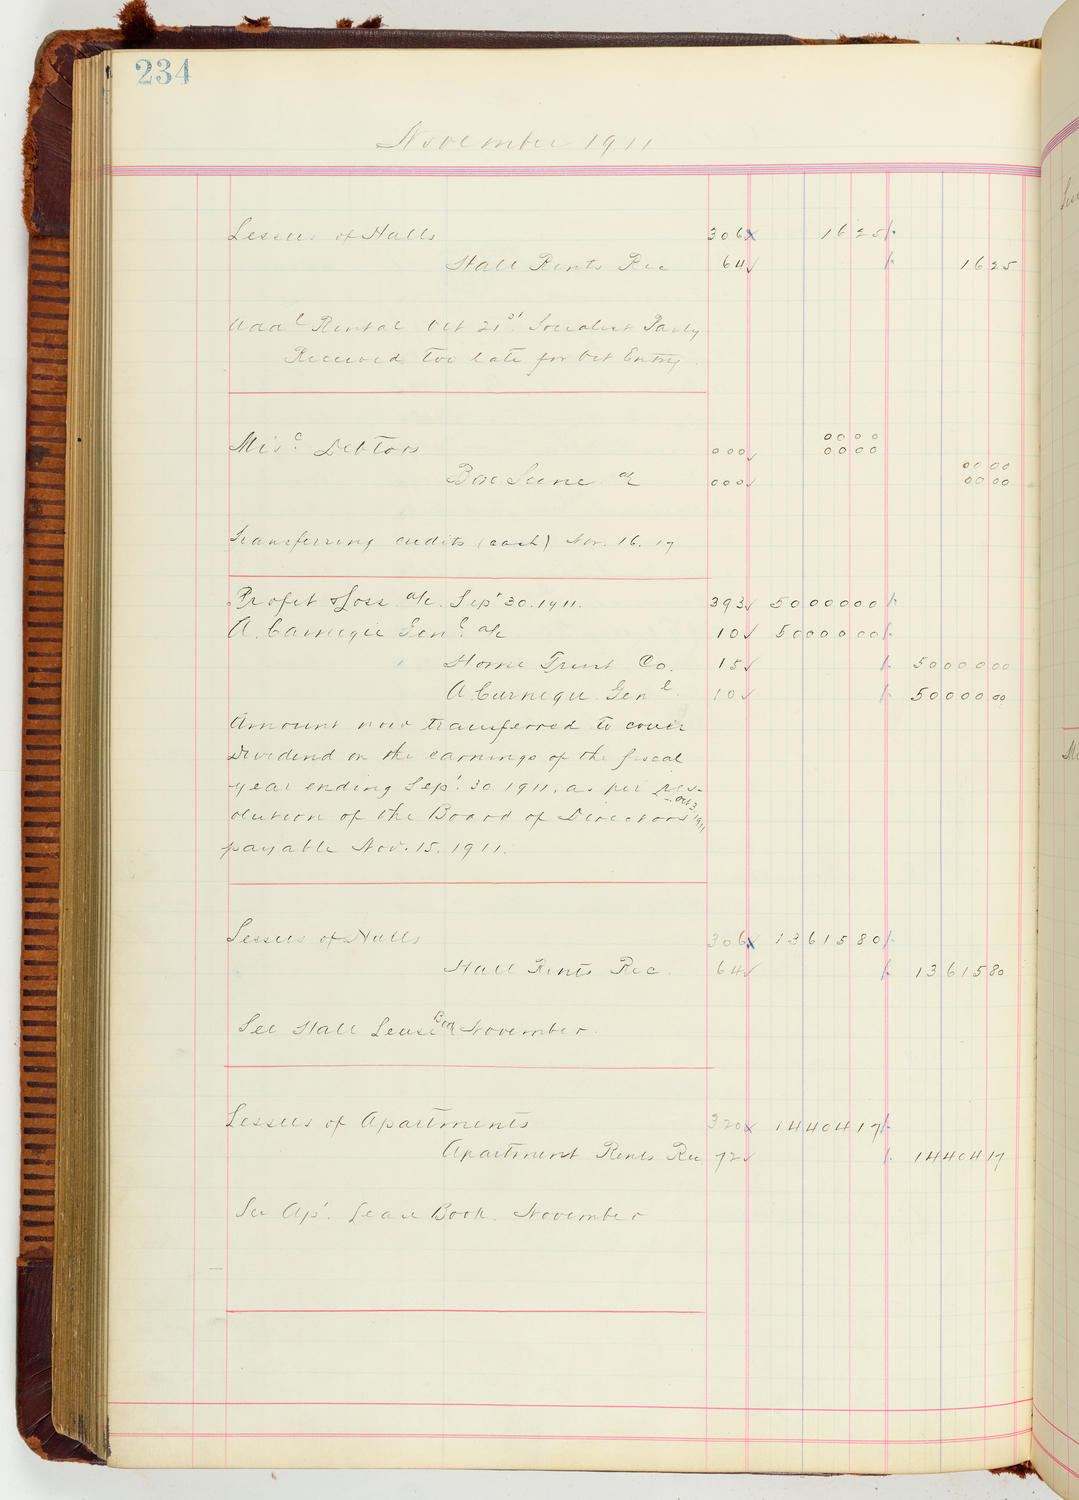 234
November 1911
Lessees of Halls 306 x 16 25
Hall Rents Rec 64 ✓ 16 25
Add'l Rental Oct 21st Socialist Party
Received too late for Oct Entry
0000
Misc. Debtors 000 ✓ 0000
0000
Box Scene a/c 000 ✓ 0000
Transferring credits (cash) Nov. 16. 17
Profit & Loss a/c. Sep' 30. 1911. 393 ✓ 50000 00
A. Carnegie Genl. a/c 10 ✓ 50000 00
Home Trust Co. 15 ✓ 50000 00
A Carnegie Genl. 10 ✓ 50000 00
Amount now transferred to cover
Dividend on the earnings of the fiscal
year ending Sep'. 30. 1911, as per Res-
Oct 3, 1911
olution of the Board of Directors
payable Nov. 15. 1911.
Lessees of Halls 306 x 13615 80
Hall Rents Rec. 64 ✓ 13615 80
See Hall Lease Book November.
Lessees of Apartments 320 x 14404 17
Apartment Rents Rec 72 ✓ 14404 17
See Ap'. Lease Book. November